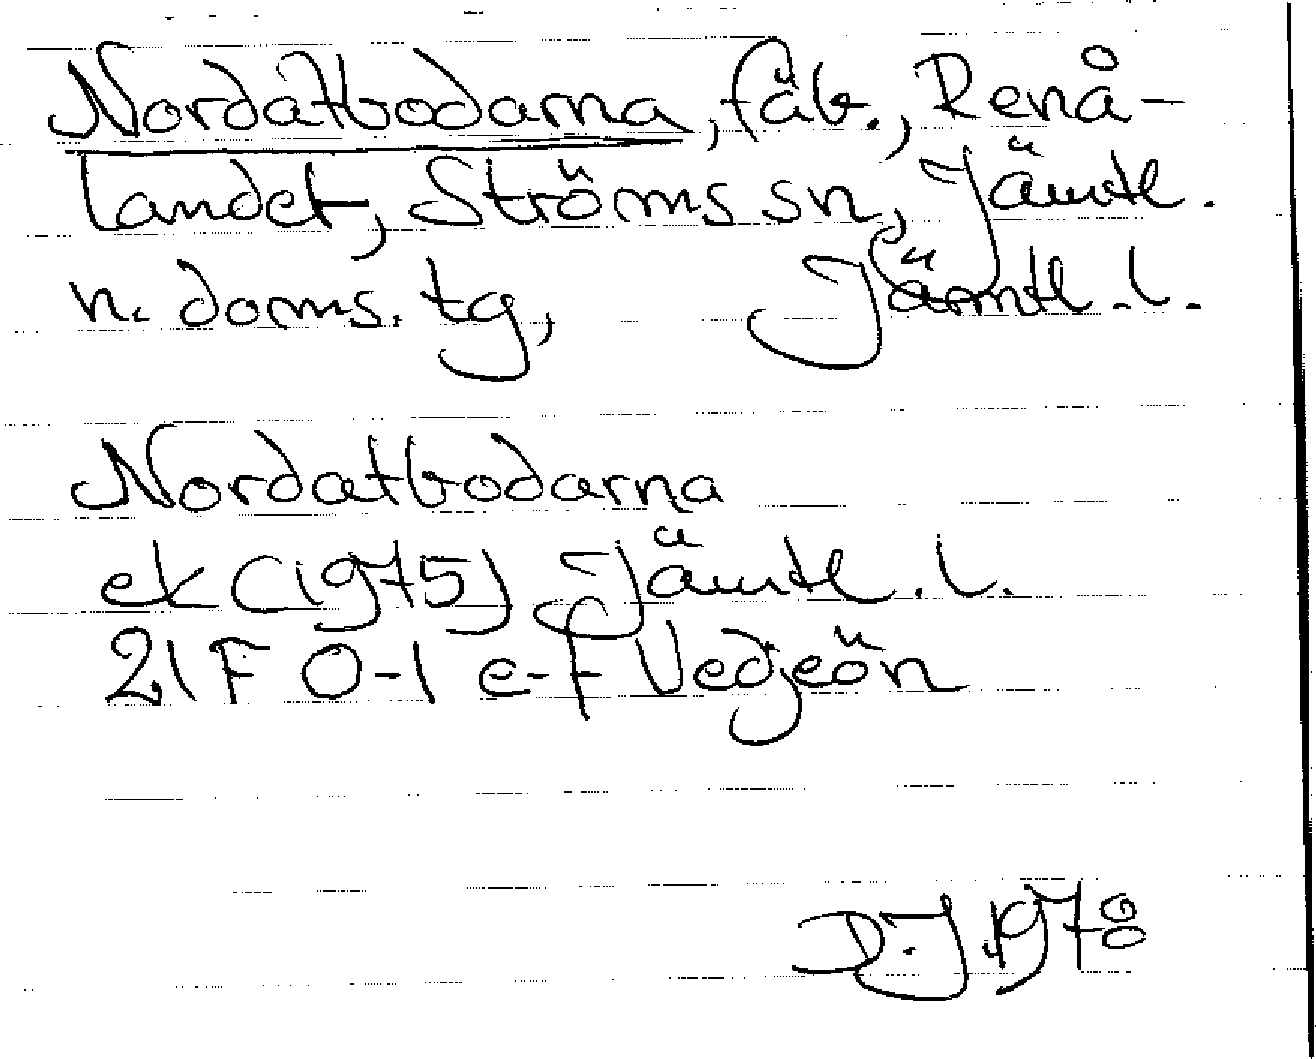 Nordatbodarna, fäb., Renå-
landet, Ströms sn, Jämtl.
n. doms. tg, Jämtl. l.
Nordatbodarna
ek (1975) Jämtl. l.
21 F 0-1 e-f Vedjeön
D.J 1978